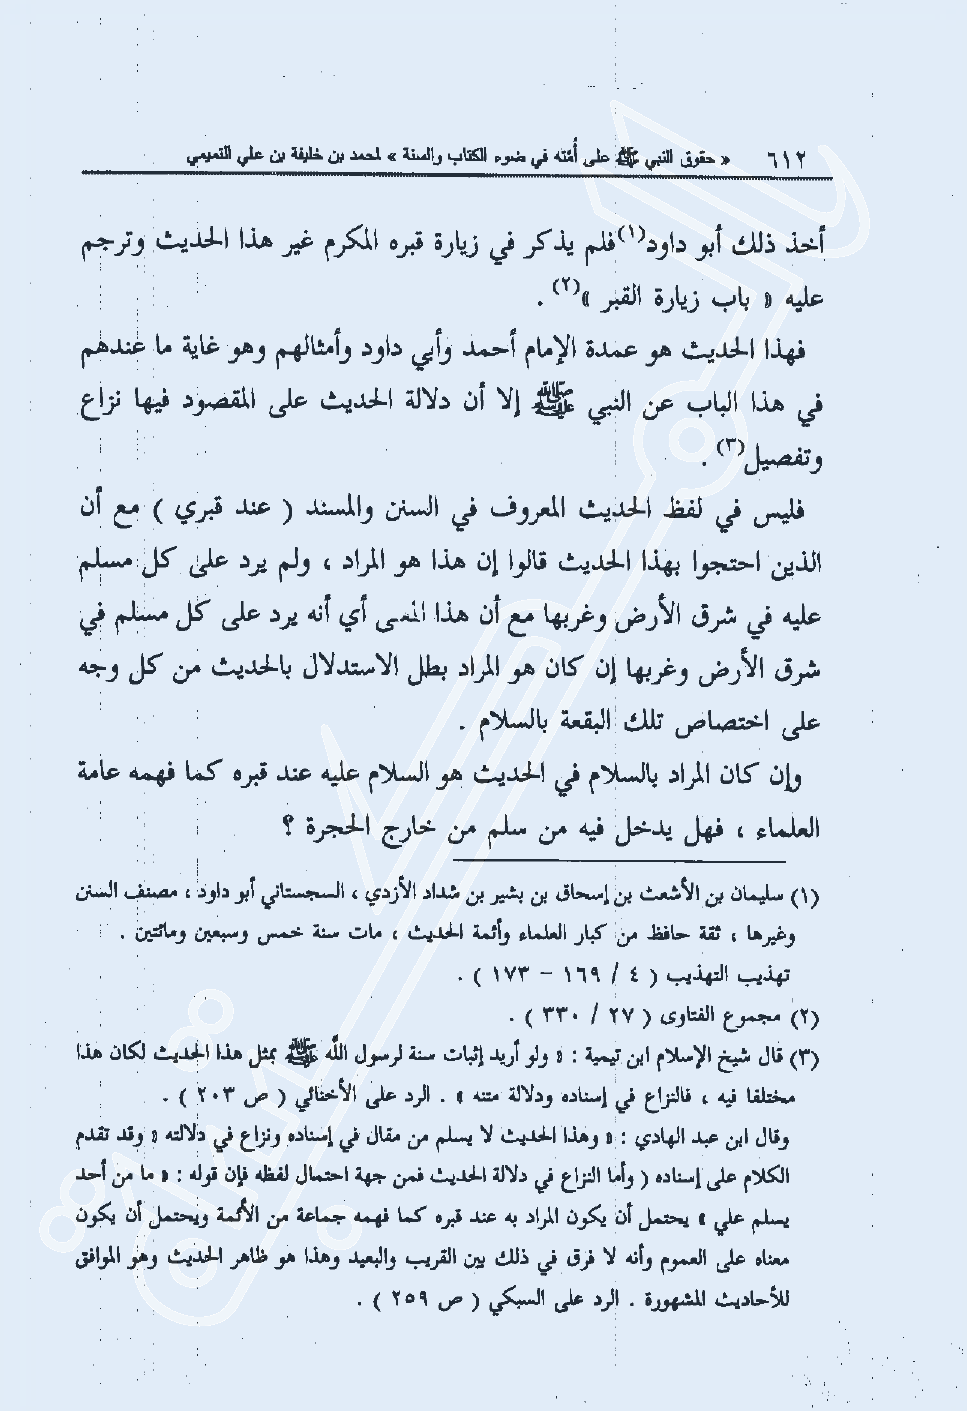 ٦١٢ « حقوق النبي ﷺ على أمّته في ضوء الكتاب والسنة » لمحمد بن خليفة بن علي التميمي
أخذ ذلك أبو داود(١) فلم يذكر في زيارة قبره المكرم غير هذا الحديث وترجم
عليه « باب زيارة القبر »(٢) .
فهذا الحديث هو عمدة الإمام أحمد وأبي داود وأمثالهم وهو غاية ما عندهم
في هذا الباب عن النبي ﷺ إلا أن دلالة الحديث على المقصود فيها نزاع
وتفصيل(٣) .
فليس في لفظ الحديث المعروف في السنن والمسند ( عند قبري ) مع أن
الذين احتجوا بهذا الحديث قالوا إن هذا هو المراد ، ولم يرد على كل مسلم
عليه في شرق الأرض وغربها مع أن هذا المعنى أي أنه يرد على كل مسلم في
شرق الأرض وغربها إن كان هو المراد بطل الاستدلال بالحديث من كل وجه
على اختصاص تلك البقعة بالسلام .
وإن كان المراد بالسلام في الحديث هو السلام عليه عند قبره كما فهمه عامة
العلماء ، فهل يدخل فيه من سلم من خارج الحجرة ؟
(١) سليمان بن الأشعث بن إسحاق بن بشير بن شداد الأزدي ، السجستاني أبو داود ، مصنف السنن
وغيرها ، ثقة حافظ من كبار العلماء وأئمة الحديث ، مات سنة خمس وسبعين ومائتين .
تهذيب التهذيب ( ٤ / ١٦٩ – ١٧٣ ) .
(٢) مجموع الفتاوى ( ٢٧ / ٣٣٠ ) .
(٣) قال شيخ الإسلام ابن تيمية : « ولو أريد إثبات سنة لرسول اللّه ﷺ بمثل هذا الحديث لكان هذا
مختلفا فيه ، فالنزاع في إسناده ودلالة متنه » . الرد على الأخنائي ( ص ٢٠٣ ) .
وقال ابن عبد الهادي : « وهذا الحديث لا يسلم من مقال في إسناده ونزاع في دلالته « وقد تقدم
الكلام على إسناده ( وأما النزاع في دلالة الحديث فمن جهة احتمال لفظه فإن قوله : « ما من أحد
يسلم علي » يحتمل أن يكون المراد به عند قبره كما فهمه جماعة من الأئمة ويحتمل أن يكون
معناه على العموم وأنه لا فرق في ذلك بين القريب والبعيد وهذا هو ظاهر الحديث وهو الموافق
للأحاديث المشهورة . الرد على السبكي ( ص ٢٥٩ ) .